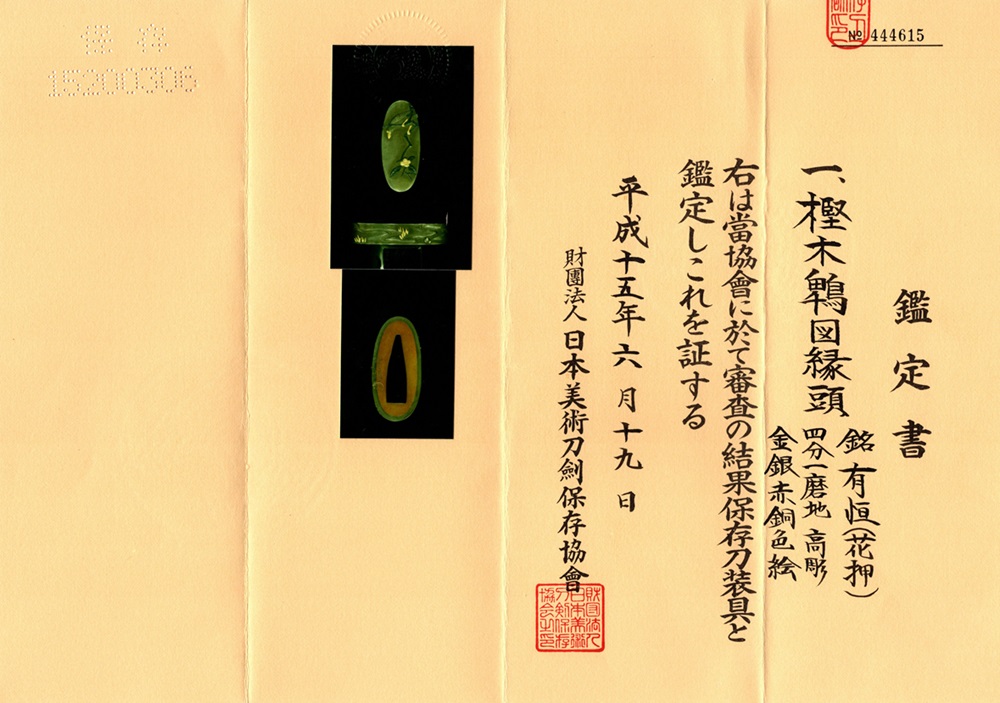 № 444615
鑑定書
一、樫木鵯図縁頭
銘 有恒(花押)
四分一磨地 高彫
金銀赤銅色絵
右は當協會に於て審査の結果保存刀装具と
鑑定しこれを証する
平成十五年六月十九日
財團法人 日本美術刀劍保存協會
財団法人日本美術刀剣保存協会之印
保存
15200306